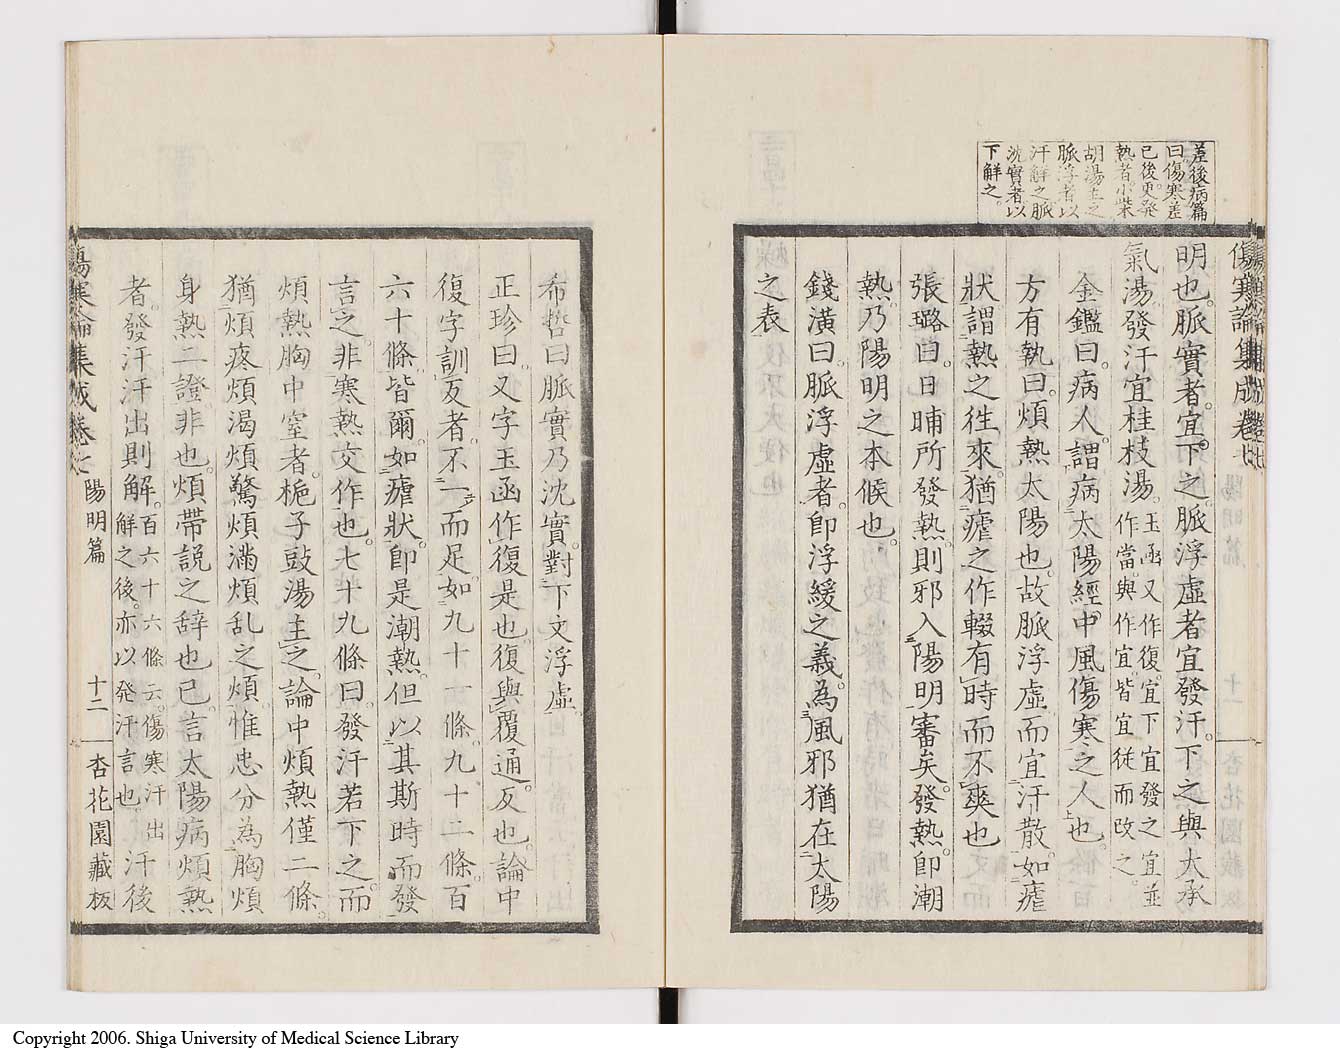 差後病篇
曰傷寒差
已後更発
熱者小柴
胡湯主之
脈浮者以
汗解之脈
沈實者以
下解之。
傷寒論集成卷七
明也。脈實者。宜下之。脈浮虛者宜發汗。下之與大承
氣湯。發汗宜桂枝湯。玉函又作復。宜下宜發之宜並
作當。與作宜。皆宜従而改之。
金鑑曰。病人。謂病太陽經。中風傷寒之人也。
方有執曰。煩熱太陽也。故脈浮虛而宜汗散。如瘧
狀。謂熱之徃來。猶瘧之作輟有時而不爽也
張璐曰。日晡所發熱。則邪入陽明審矣。發熱。卽潮
熱。乃陽明之本候也。
錢潢曰。脈浮虛者。卽浮緩之義。為風邪猶在太陽
之表
希哲曰脈實乃沈實。對下文浮虛。
正珍曰。又字玉函作復是也。復與覆通。反也。論中
復字訓反者。不一而足。如九十一條。九十二條。百
六十條。皆爾。如瘧狀。卽是潮熱。但以其斯時而發
言之。非寒熱交作也。七十九條曰。發汗若下之。而
煩熱胸中窒者。梔子豉湯主之。論中煩熱僅二條。
猶煩疼煩渴煩驚煩滿煩乱之煩。惟忠分為胸煩
身熱二證非也。煩帶説之辞也。已言太陽病煩熱
者。發汗汗出則解。百六十六條云。傷寒汗出
解之後。亦以発汗言也。汗後
傷寒論集成卷之七
陽明篇
十二
杏花園藏板